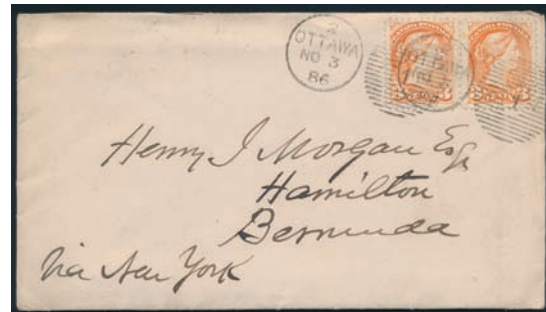 2
OTTAWA
NO 3
86
Henry J Morgan Esq
Hamilton
Bermuda
Via New York